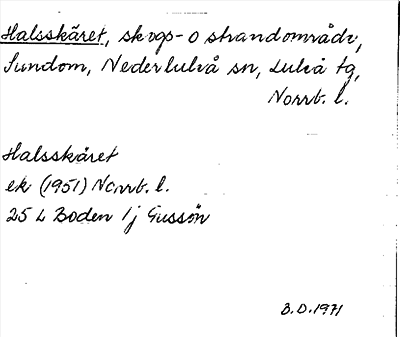 Halsskäret, skogs- o strandområde,
Sundom, Nederluleå sn, Luleå tg,
Norrb. l.
Halsskäret
ek (1951) Norrb. l.
25 L Boden 1j Gussön
B.D. 1971